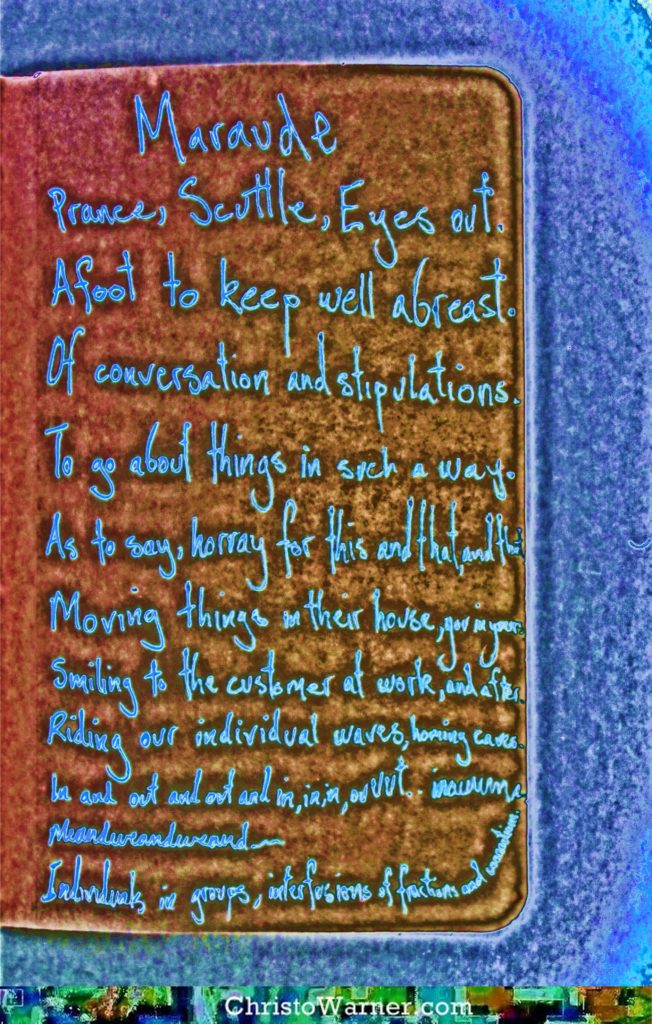 Maraude
Prance, Scuttle, Eyes out.
Afoot to keep well abreast.
Of conversation and stipulations.
To go about things in such a way.
As to say, horray for this and that, and that
Moving things in their house, you in yours.
Smiling to the customer at work, and after.
Riding our individual waves, homing caves.
In and out and out and in, in, in, ouvvt..
Meandweandweand
Individuals, in groups, interfusions of fractions and connections.
ChristoWarner.com